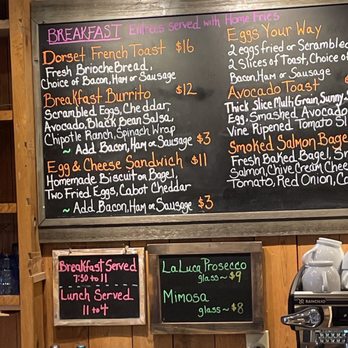 BREAKFAST Entrées served with Home Fries
Dorset French Toast $16
Fresh Brioche Bread,
Choice of Bacon, Ham or Sausage
Breakfast Burrito $12
Scrambled Eggs, Cheddar,
Avocado, Black Bean Salsa,
Chipotle Ranch, Spinach Wrap
~ Add Bacon, Ham or Sausage $3
Egg & Cheese Sandwich $11
Homemade Biscuit or Bagel,
Two Fried Eggs, Cabot Cheddar
~ Add Bacon, Ham or Sausage $3
Eggs Your Way
2 eggs fried or Scrambled
2 Slices of Toast, Choice of
Bacon, Ham or Sausage
Avocado Toast
Thick Slice Multi Grain, Sunny
Egg, Smashed Avocado
Vine Ripened Tomato
Smoked Salmon Bagel
Fresh Baked Bagel,
Salmon, Chive Cream
Tomato, Red Onion,
Breakfast Served
7:30 to 11
Lunch Served
11 to 4
La Luca Prosecco
glass ~ $9
Mimosa
glass ~ $8
RANCILIO